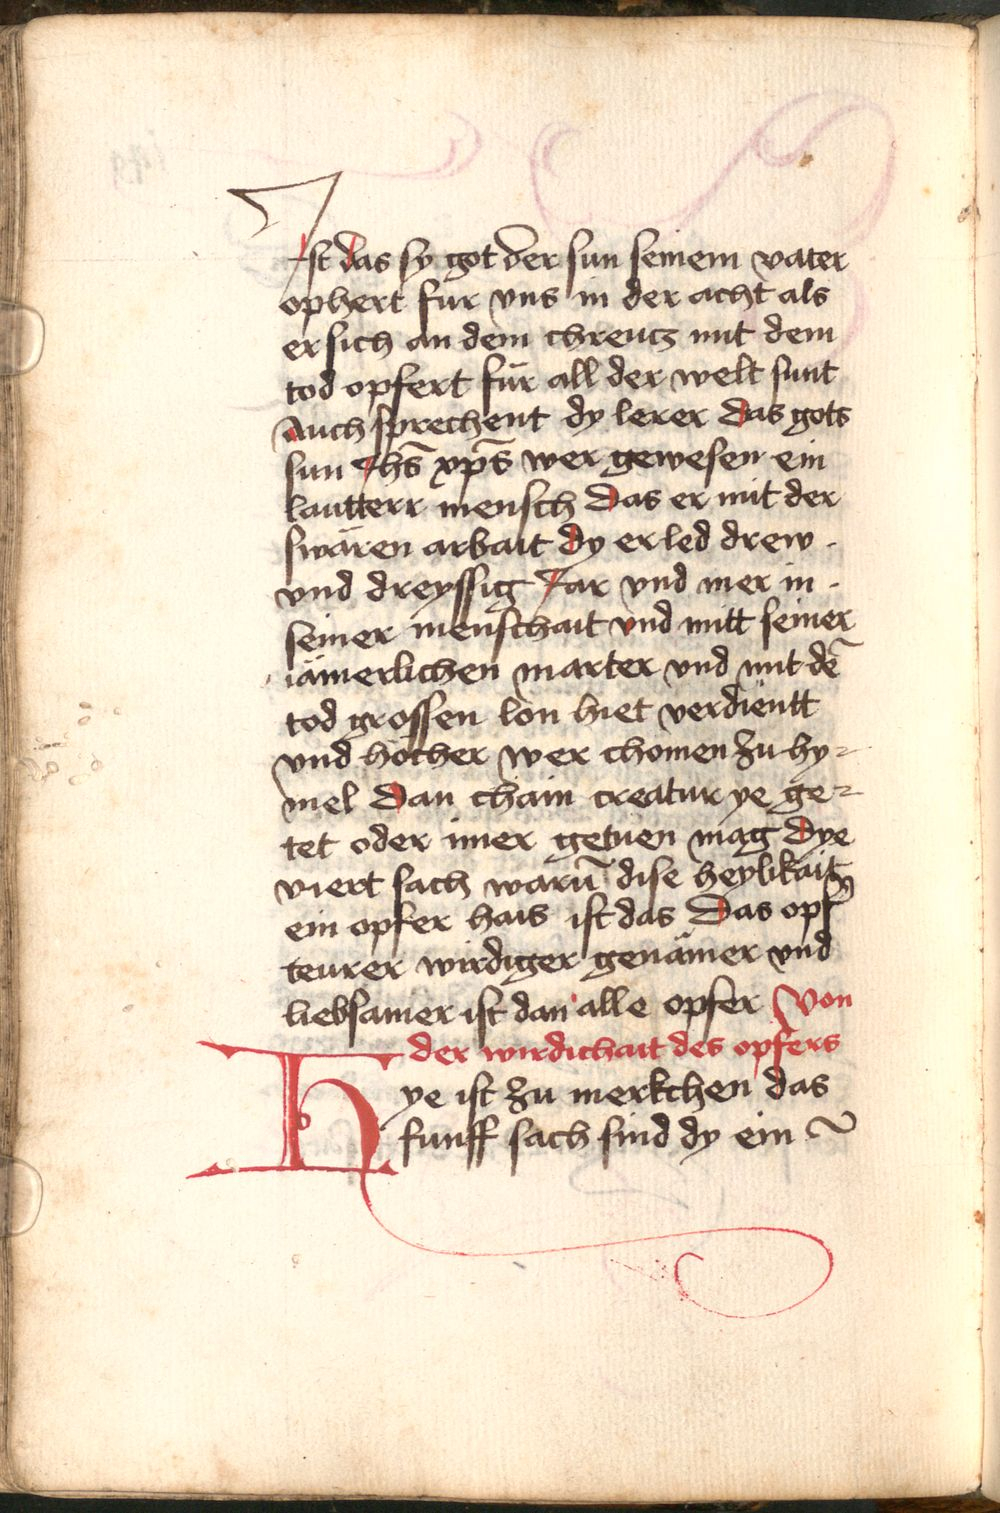 Ist das sy got der sun seinem vater
ophert fur vns in der acht als
er sich an dem chreucz mit dem
tod opfert für all der welt sunt
Auch sprechent dy lerer das gots
sun Ihs̄ xp̄s wer gewesen ein
lautterr mensch Das er mit der
swären arbait dy er led drew
vnd dreyssig Jar vnd mer in
seiner menschait vnd mitt seiner
iämerlichen marter vnd mit dē
tod grossen lon hiet verdientt
vnd höcher wer chomen zu hy⸗
mel Dan chain creatur ye ge⸗
tet oder imer getuen mag Dye
viert sach warū dise heylikait
ein opfer hais ist das Das opf̄
teurer wirdiger genämer vnd
liebsamer ist dan alle opfer Von
der wirdichait des opfers
Hye ist zu merkchen das
funff sach sind dy ein